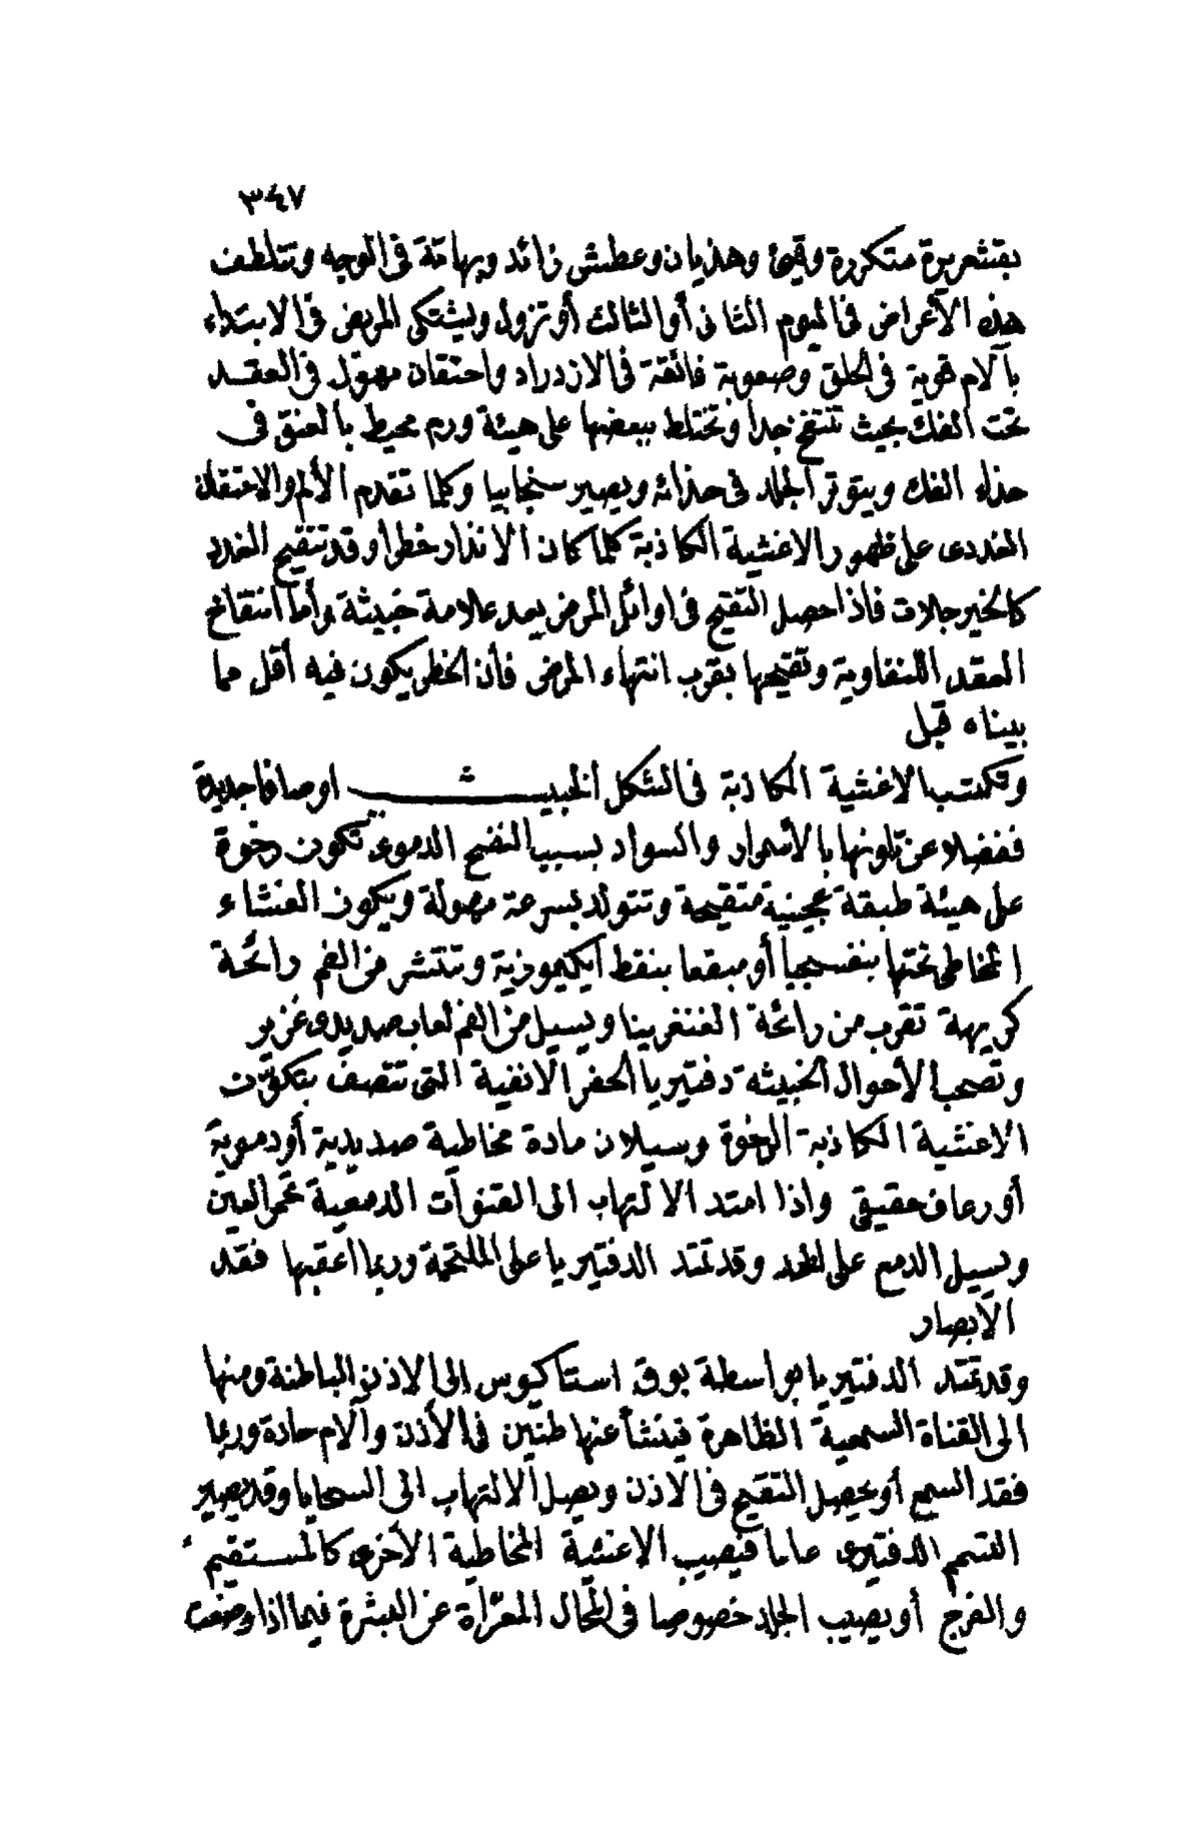 ٣٤٧
بقشعريرة متكررة وقيئ وهذيان وعطش زائد وبهاتة في الوجه وتتلطف
هذه الأعراض في اليوم الثاني أو الثالث أو تزول ويشتكي المريض في الابتداء
بآلام قوية في الحلق وصعوبة فائقة في الازدراد واحتقان مهول في العقد
تحت الفك بحيث تنتفخ جدا وتختلط ببعضها على هيئة ورم محيط بالعنق في
حذاء الفك ويتوتر الجلد في حذائه ويصير سنجابيا وكلما تقدم الألم والاحتقان
الغددي على ظهور الاغشية الكاذبة كلما كان الانذار خطرا وقد تتقيح الغدد
كالخيرجلات فاذا حصل التقيح في اوائل المرض يعد علامة خبيثة وأما انتفاخ
العقد اللنفاوية وتقيحها بقرب انتهاء المرض فأن الخطر يكون فيه أقل مما
بيناه قبل
وتكتسب الاغشية الكاذبة في الشكل الخبيث اوصافا جديدة
ففضلا عن تلونها بالأسمرار والسواد بسبب النضح الدموي تكون رخوة
على هيئة طبقة عجينية متقيحة وتتولد بسرعة مهولة ويكون الغشاء
المخاطي تحتها بنفسجيا أو مبقعا بنقط ايكيموزية وتنتشر من الفم رائحة
كريهة تقرب من رائحة الغنغرينا ويسيل من الفم لعاب صديدي غزير
وتصحب الأحوال الخبيثة دفتيريا الحفر الانفية التي تتصف بتكون
الاغشية الكاذبة الرخوة وسيلان مادة مخاطية صديدية أو دموية
أو رعاف حقيقي واذا امتد الالتهاب الى القنوات الدمعية تحمر العين
ويسيل الدمع على الخد وقد تمتد الدفتيريا على الملتحمة وربما اعقبها فقد
الابصار
وقد تمتد الدفتيريا بواسطة بوق استاكيوس الى الاذن الباطنة ومنها
الى القناة السمعية الظاهرة فينشأ عنها طنين في الأذن وآلام حادة وربما
فقد السمع أو يحصل التقيح في الاذن ويصل الالتهاب الى السحايا وقد يصير
التسمم الدفتيري عاما فيصيب الاغشية المخاطية الأخرى كالمستقيم
والفرج أو يصيب الجلد خصوصا في المحال المعراة عن البشرة فيما اذا وضعت